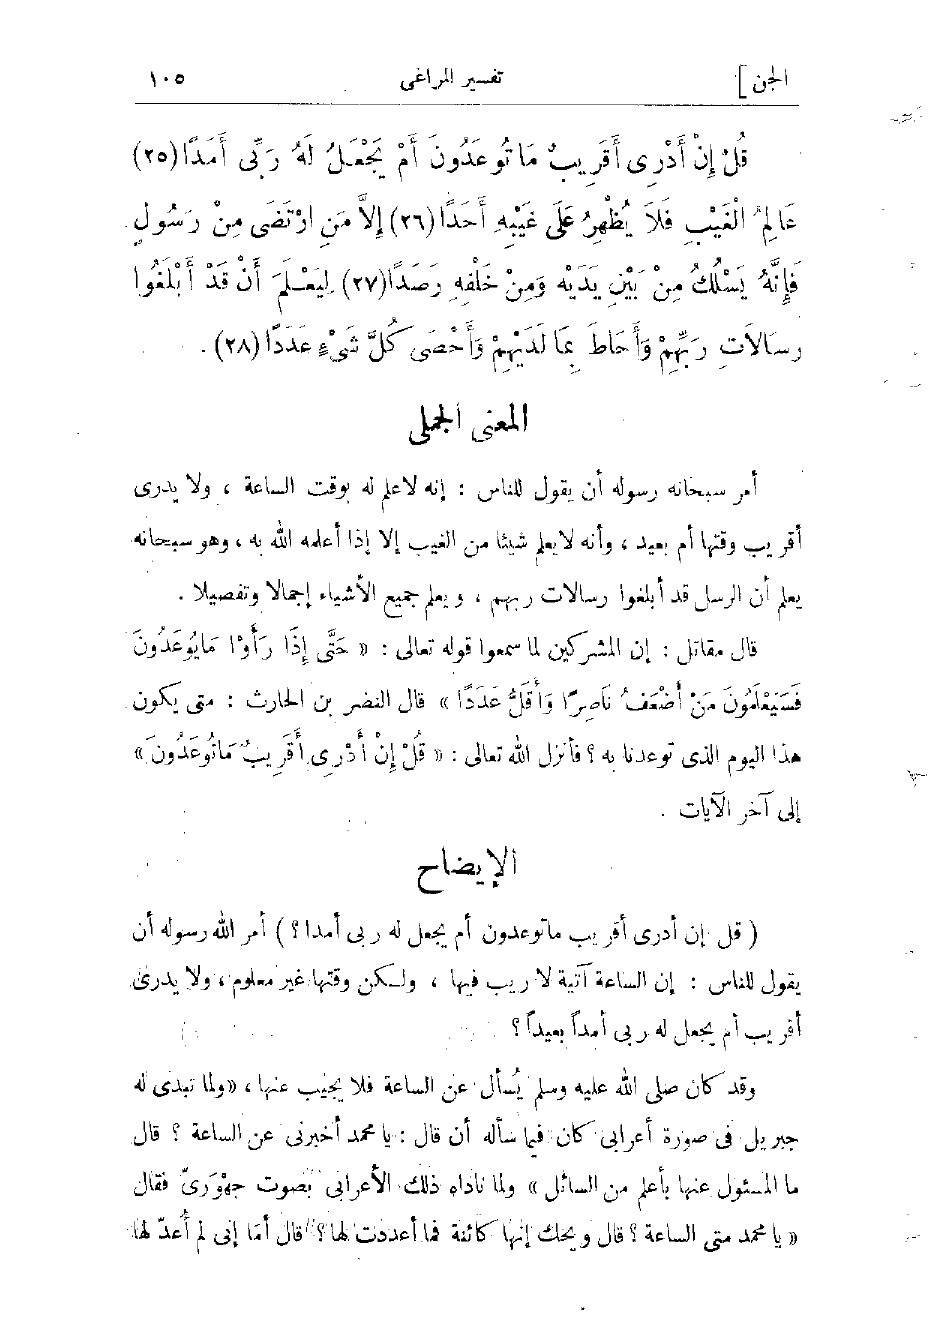 الجن ] تفسير المراغى ١٠٥
قُلْ إِنْ أَدْرِى أَقَرِيبٌ مَا تُوعَدُونَ أَمْ يَجْعَلُ لَهُ رَبِّى أَمَدًا (٢٥)
عَالِمُ الْغَيْبِ فَلَا يُظْهِرُ عَلَى غَيْبِهِ أَحَدًا (٢٦) إِلاَّ مَنِ ارْتَضَى مِنْ رَسُولٍ
فَإِنَّهُ يَسْلُكُ مِنْ بَيْنِ يَدَيْهِ وَمِنْ خَلْفِهِ رَصَدًا (٢٧) لِيَعْلَمَ أَنْ قَدْ أَبْلَغُوا
رِسَالَاتِ رَبِّهِمْ وَأَحَاطَ بِمَا لَدَيْهِمْ وَأَحْصَى كُلَّ شَىْءٍ عَدَدًا (٢٨) .
المعنى الجملى
أمر سبحانه رسوله أن يقول للناس : إنه لا علم له بوقت الساعة ، ولا يدرى
أقريب وقتها أم بعيد ، وأنه لا يعلم شيئا من الغيب إلا إذا أعلمه الله به ، وهو سبحانه
يعلم أن الرسل قد أبلغوا رسالات ربهم ، ويعلم جميع الأشياء إجمالا وتفصيلا .
قال مقاتل : إن المشركين لما سمعوا قوله تعالى : « حَتَّى إِذَا رَأَوْا مَا يُوعَدُونَ
فَسَيَعْلَمُونَ مَنْ أَضْعَفُ نَاصِرًا وَأَقَلُّ عَدَدًا » قال النضر بن الحارث : متى يكون
هذا اليوم الذى توعدنا به ؟ فأنزل الله تعالى : « قُلْ إِنْ أَدْرِى أَقَرِيبٌ مَا تُوعَدُونَ »
إلى آخر الآيات .
الإيضاح
( قل إن أدرى أقريب ما توعدون أم يجعل له ربى أمدا ؟ ) أمر الله رسوله أن
يقول للناس : إن الساعة آتية لا ريب فيها ، ولكن وقتها غير معلوم ، ولا يدرى
أقريب أم يجعل له ربى أمداً بعيداً ؟
وقد كان صلى الله عليه وسلم يُسأل عن الساعة فلا يجيب عنها ، « ولما تبدى له
جبريل فى صورة أعرابى كان فيما سأله أن قال : يا محمد أخبرنى عن الساعة ؟ قال
ما المسئول عنها بأعلم من السائل » ولما ناداه ذلك الأعرابى بصوت جهْوَرىّ فقال
« يا محمد متى الساعة ؟ قال ويحك إنها كائنة فما أعددت لها ؟ قال أمَا إنى لم أُعدّ لها